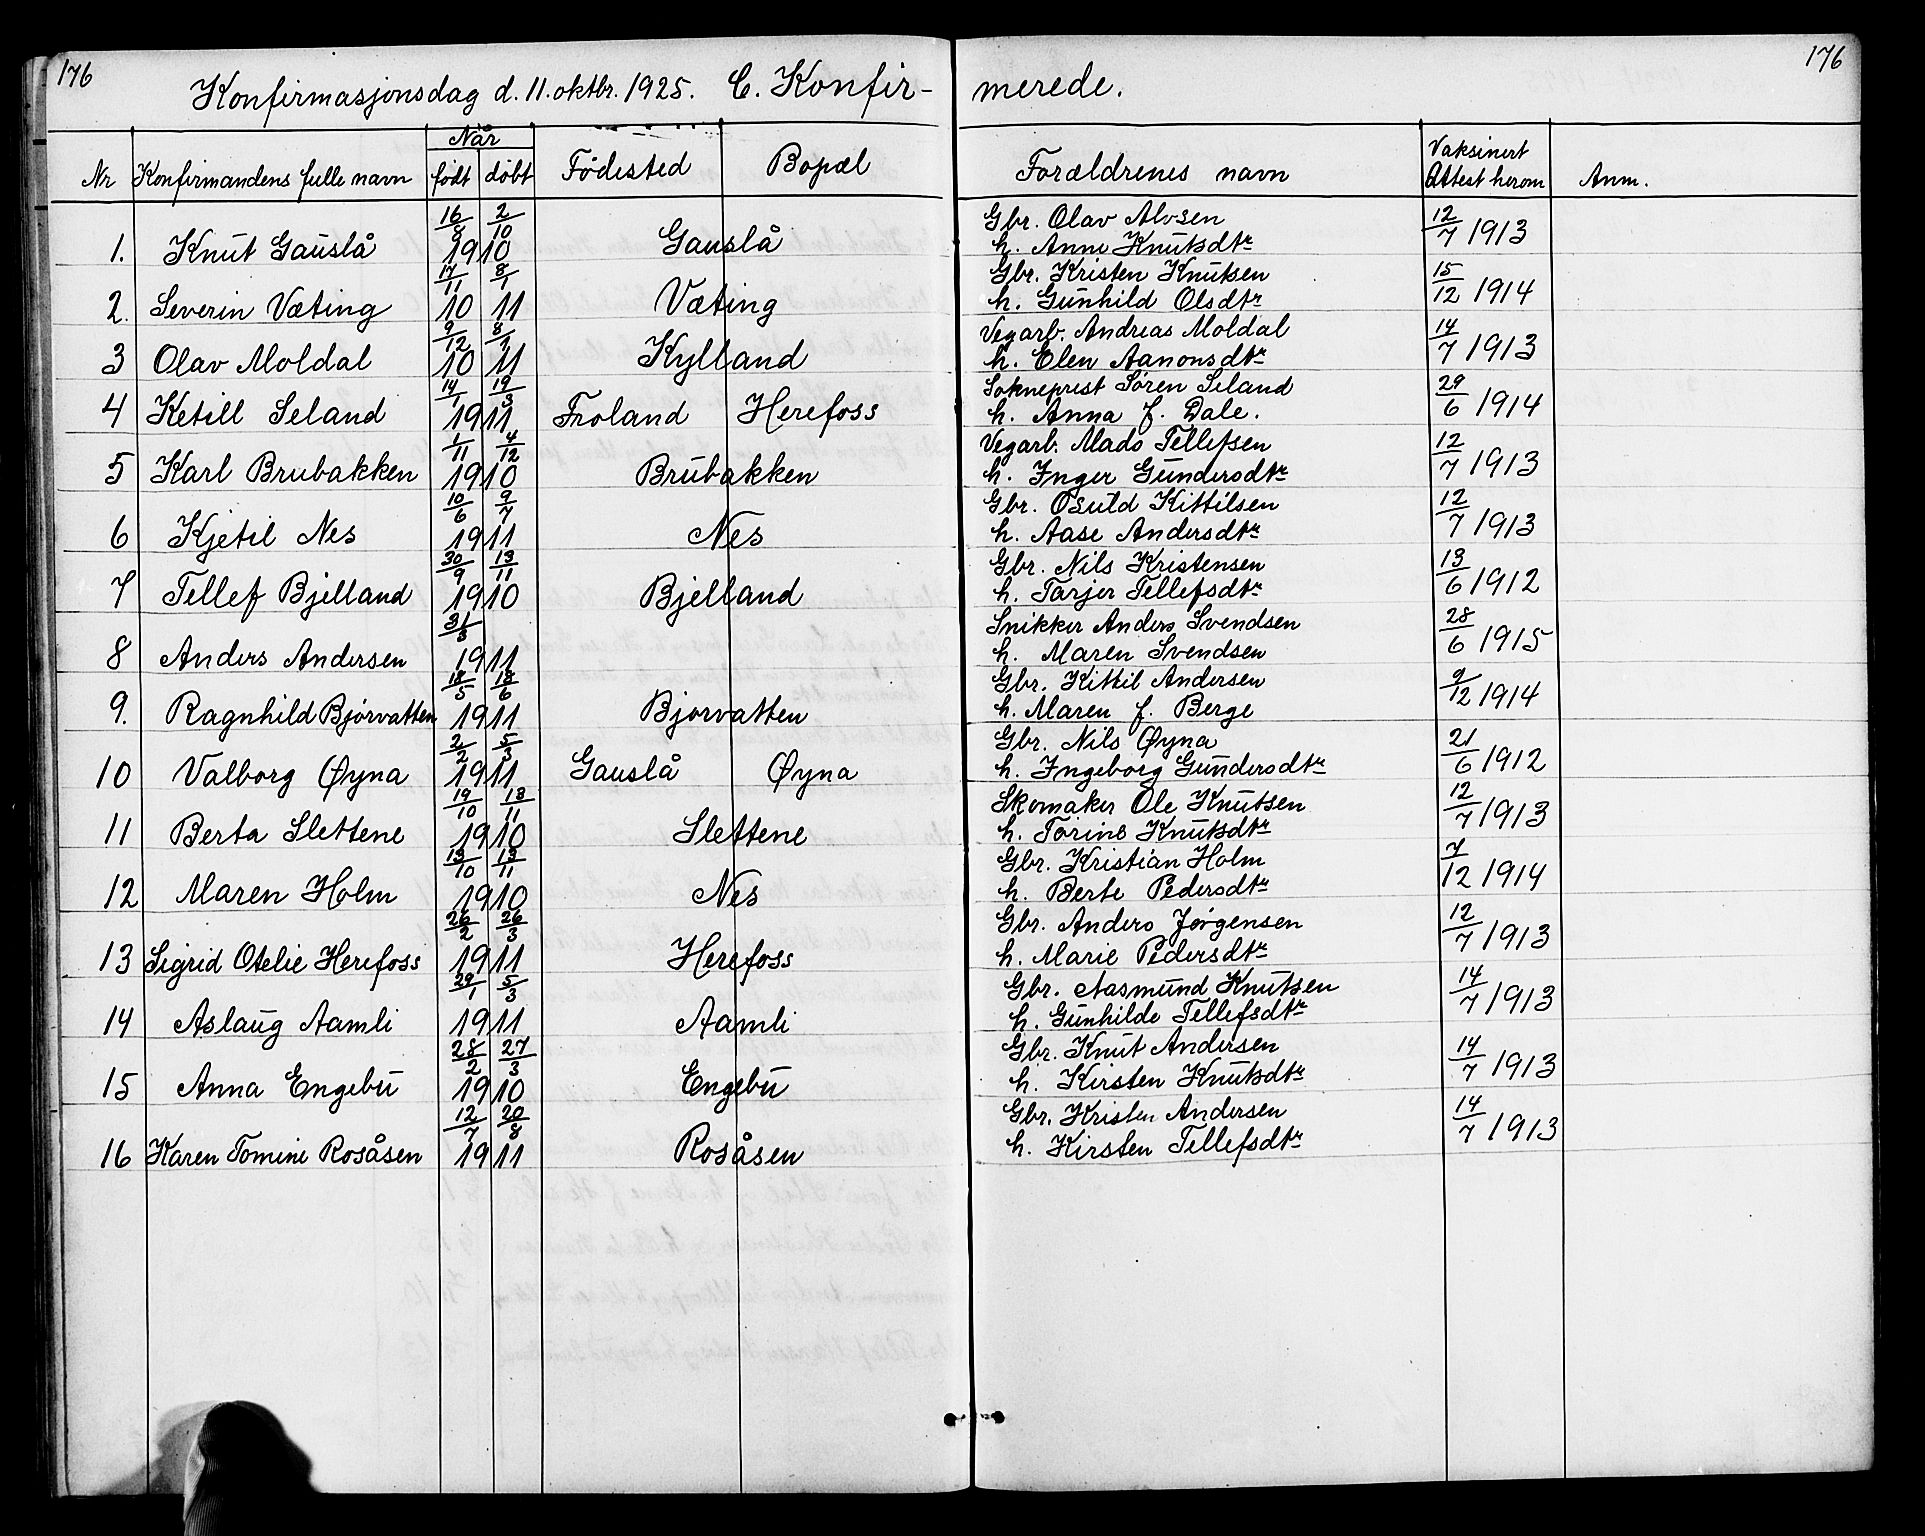 176 176
Konfirmasjonsdag d. 11. oktbr. 1925. C. Konfir- merede.
Nr Konfirmandens fulle navn Når født døbt Fødested Bopæl Forældrenes navn Vaksinert Attest herom Anm.
1. Knut Gauslå 16/8 2/10 1910 Gauslå Gbr. Olav Alvsen 12/7 1913
h. Anne Knutsdtr
2. Severin Væting 17/11 10 8/1 11 Væting Gbr. Kristen Knutsen 15/12 1914
h. Gunhild Olsdtr
3 Olav Moldal 9/12 10 8/1 11 Kylland Vegarb. Andreas Moldal 14/7 1913
h. Elen Aanonsdtr
4 Ketill Seland 14/1 19/3 1911 Froland Herefoss Sokneprest Søren Seland 29/6 1914
h. Anna f. Dale.
5 Karl Brubakken 1/11 4/12 1910 Brubakken Vegarb. Mads Tellefsen 12/7 1913
h. Inger Gundersdtr
6 Kjetil Nes 10/6 9/7 1911 Nes Gbr. Osuld Kittilsen 12/7 1913
h. Aase Andersdtr
7 Tellef Bjelland 30/9 13/11 1910 Bjelland Gbr. Nils Kristensen 13/6 1912
h. Tarjer Tellefsdtr
8 Anders Andersen 31/3 1911 Snikker Anders Svendsen 28/6 1915
h. Maren Svendsen
9. Ragnhild Bjørvatten 18/5 18/6 1911 Bjørvatten Gbr. Kittil Andersen 9/12 1914
h. Maren f. Berge
10 Valborg Øyna 2/2 5/3 1911 Gauslå Øyna Gbr. Nils Øyna 21/6 1912
h. Ingeborg Gundersdtr
11 Berta Slettene 19/10 13/11 1910 Slettene Skomaker Ole Knutsen 12/7 1913
h. Torine Knutsdtr
12 Maren Holm 13/10 13/11 1910 Nes Gbr. Kristian Holm 7/12 1914
h. Berte Pedersdtr
13 Sigrid Otelie Herefoss 26/2 26/3 1911 Herefoss Gbr. Anders Jørgensen 12/7 1913
h. Marie Pedersdtr
14 Aslaug Aamli 29/1 5/3 1911 Aamli Gbr. Aasmund Knutsen 14/7 1913
h. Gunhilde Tellefsdtr
15 Anna Engebu 28/2 27/3 1910 Engebu Gbr. Knut Andersen 14/7 1913
h. Kirsten Knutsdtr
16 Karen Tomine Rosåsen 12/7 20/8 1911 Rosåsen Gbr. Kristen Andersen 14/7 1913
h. Kirsten Tellefsdtr